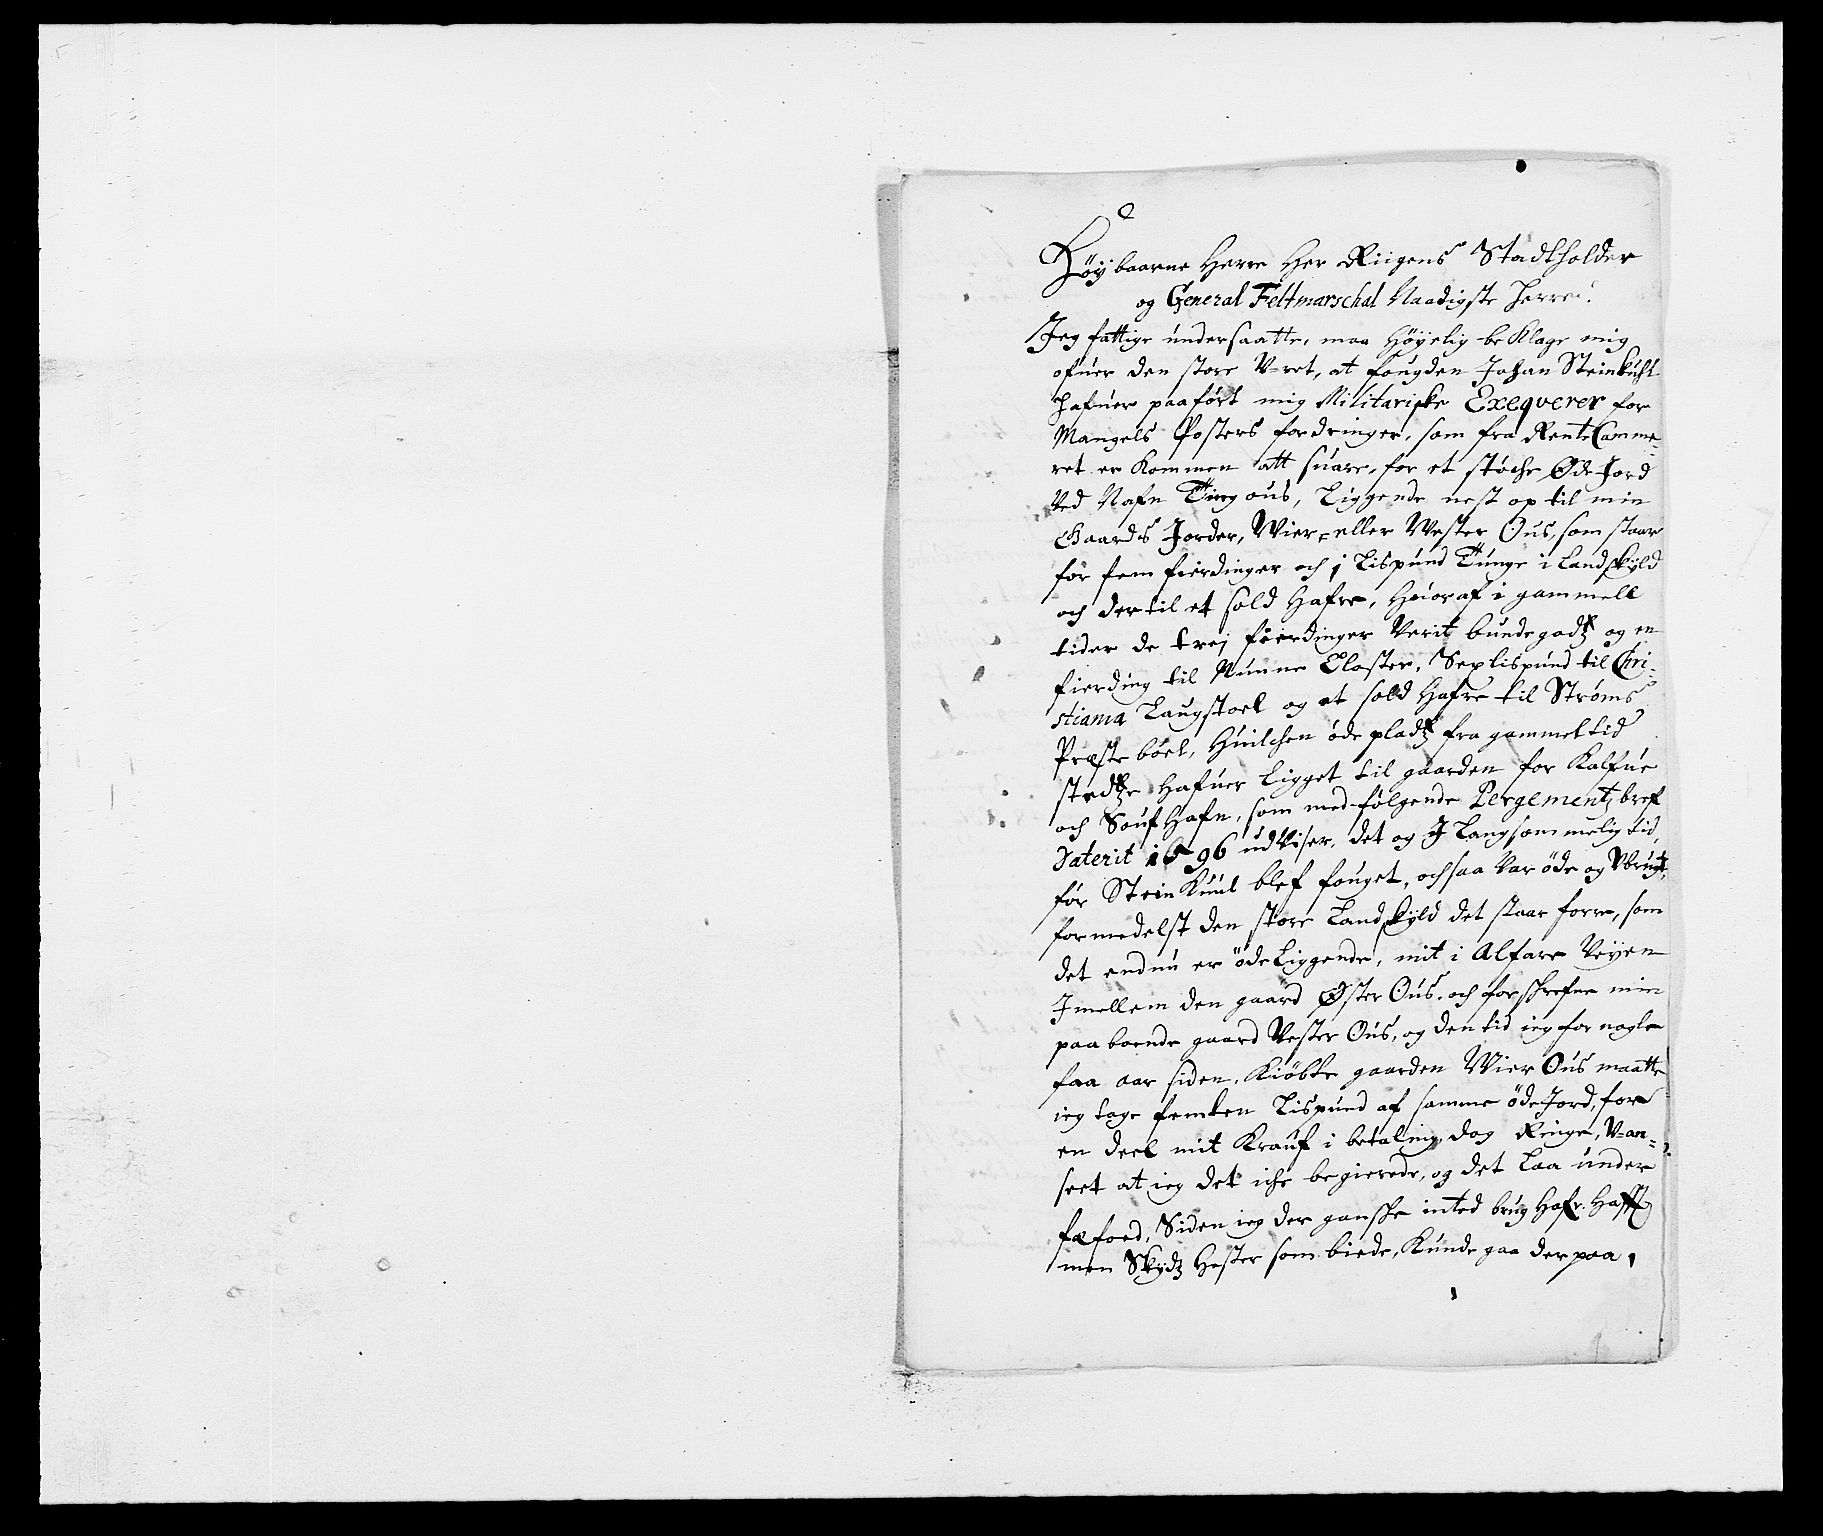 Höybaarne Herre Her Riigens Stadtholder
og General Feltmarschal Naadigste Herre.
Jeg fattige undersaatte, maa Höyelig be Klage mig
ofuer den store V-ret, at fougden Johan Steinkuhl
hafuer paafört mig Militariske Exeqverer for
Mangels Posters fordringer, som fra Rente Camme-
ret er Kommen att suare, for et støche Øde Jord
Ved Nafn Ting ous, Liggende nest op til min
Gaards Jorder, Wier- eller Wester Ous, som staar
for fem fierdinger och j Lispund Tunge i Landskyld
och dertil et sold Hafre, Huoraf i gammell
tider de trej fierdinger Verit bundegodtz og en
fierding til Nunne Closter, Sexlispund til Chri-
stiania Laugstoel og et sold Hafre til Strøms
Præste böel, Huilchen öde pladtz fra gammel tid
stedtze Hafuer Ligget til gaarden for Kalfue
och Souf Hafn, som medfølgende Pergements bref
Daterit 1696 udViser, det og J Langsommelig tid,
för Stein Kuul blef fouget, och saa Var öde og Vbrugt,
formedelst den store Landskyld det staar forre, som
det endnu er öde Liggende, mit i Alfare Veyen
Jmellem den gaard Øster Ous, och forschrefne min
paa boende gaard Vester Ous, og den tid ieg for nogle
faa aar siden, Kiöbte gaarden Wier Ous maatte
ieg tage femten Lispund af samme öde Jord, for
en deel mit Krauf i betaling, dog Ringe, V-an-
seet at ieg det iche begierede, og det Laa under
fæfoed, Siden ieg der ganske inted brug Hafr. Hafft
men Skydtz Hester som biede, Kunde gaa der paa,